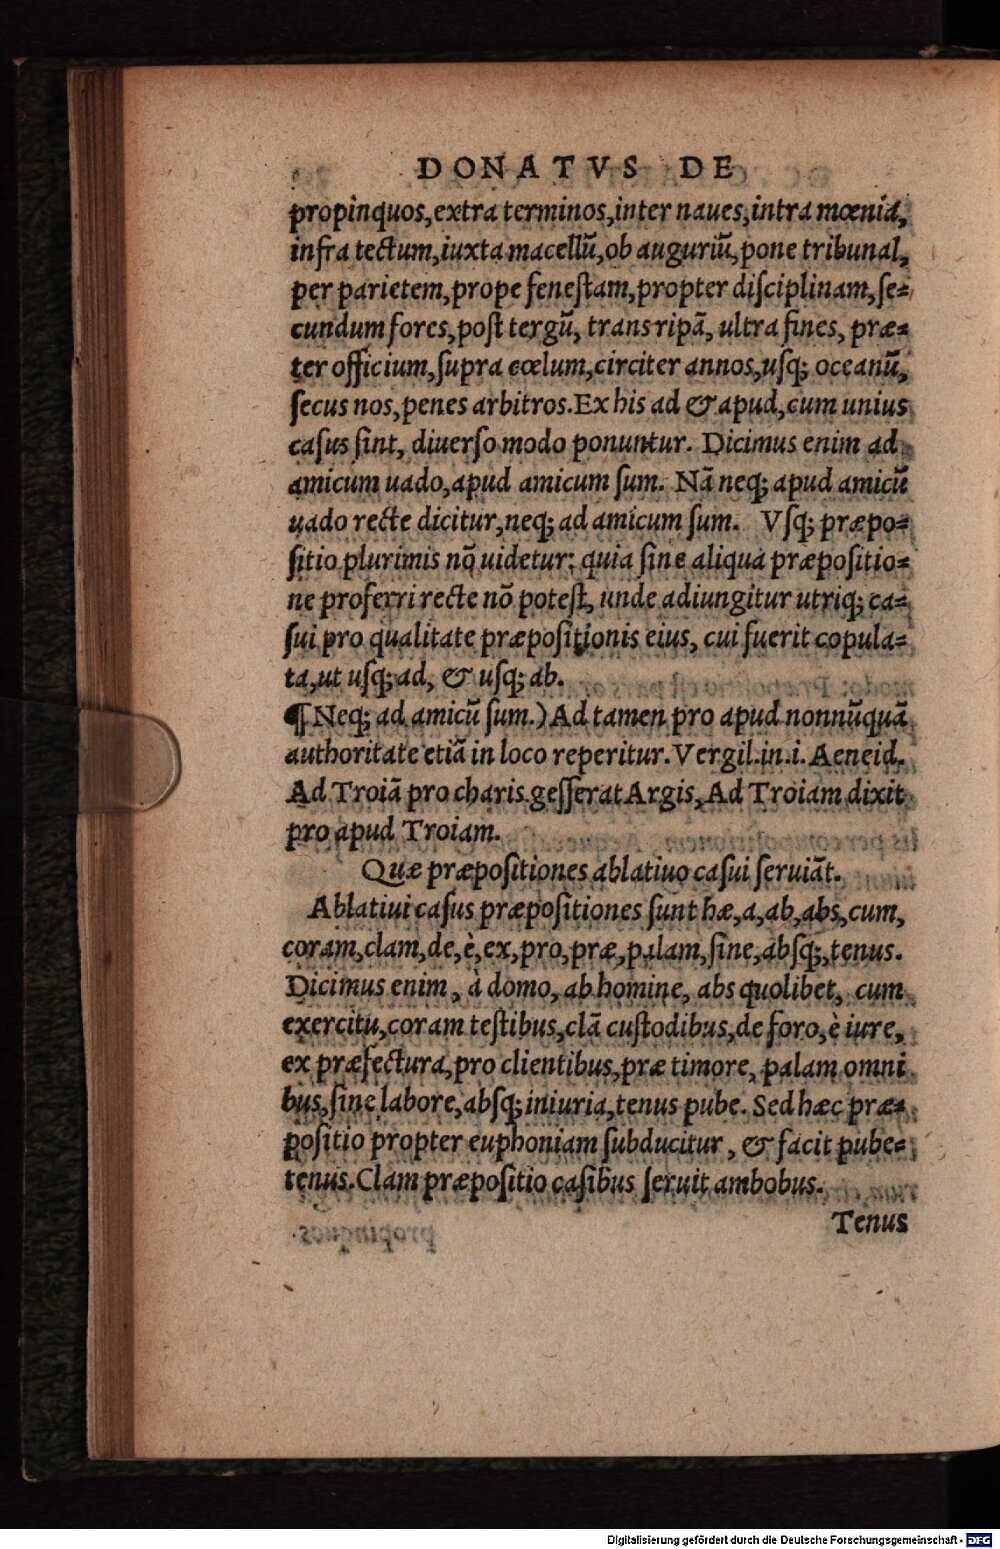 DONATVS DE
propinquos, extra terminos, inter naues, intra mœnia,
infra tectum, iuxta macellũ, ob auguriũ, pone tribunal,
per parietem, prope feneſtam, propter diſciplinam, ſe⸗
cundum fores, poſt tergũ, trans ripã, ultra fines, præ⸗
ter officium, ſupra cœlum, circiter annos, uſq; oceanũ,
ſecus nos, penes arbitros. Ex his ad & apud, cum unius
caſus ſint, diuerſo modo ponuntur. Dicimus enim ad
amicum uado, apud amicum ſum. Nã neq; apud amicũ
uado recte dicitur, neq; ad amicum ſum. Vſq; præpo⸗
ſitio plurimis nõ uidetur: quia ſine aliqua præpoſitio⸗
ne proferri recte nõ poteſt, unde adiungitur utriq; ca⸗
ſui pro qualitate præpoſitionis eius, cui fuerit copula⸗
ta, ut uſq; ad, & uſq; ab.
¶ Neq; ad amicũ ſum.) Ad tamen pro apud nonnũquã
authoritate etiã in loco reperitur. Vergil. in .i. Aeneid.
Ad Troiã pro charis geſſerat Argis, Ad Troiam dixit
pro apud Troiam.
Quæ præpoſitiones ablatiuo caſui ſeruiãt.
Ablatiui caſus præpoſitiones ſunt hæ, a, ab, abs, cum,
coram, clam, de, è, ex, pro, præ, palam, ſine, abſq;, tenus.
Dicimus enim, à domo, ab homine, abs quolibet, cum
exercitu, coram teſtibus, clã cuſtodibus, de foro, è iure,
ex præfectura, pro clientibus, præ timore, palam omni
bus, ſine labore, abſq; iniuria, tenus pube. Sed hæc præ⸗
poſitio propter euphoniam ſubducitur, & facit pube⸗
tenus. Clam præpoſitio caſibus ſeruit ambobus.
Tenus
Digitalisierung gefördert durch die Deutsche Forschungsgemeinschaft - DFG